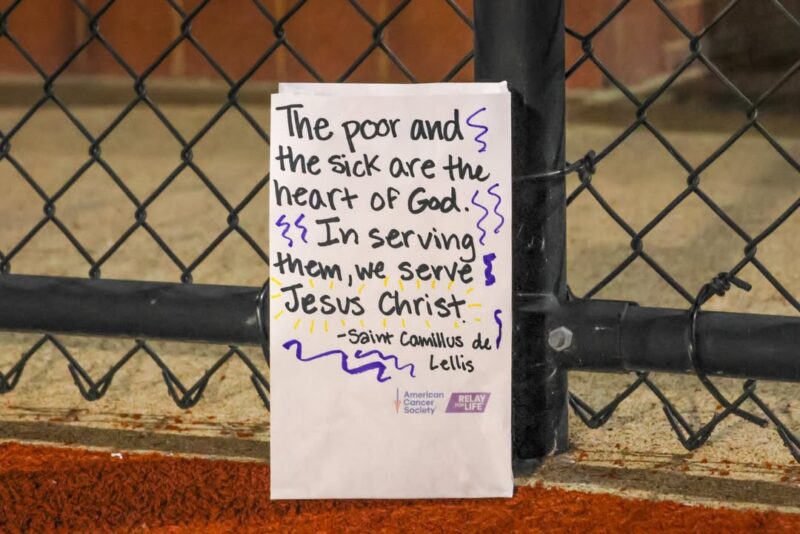 The poor and
the sick are the
heart of God.
In serving
them, we serve
Jesus Christ.
-Saint Camillus de
Lellis
American
Cancer
Society
RELAY
FOR LIFE